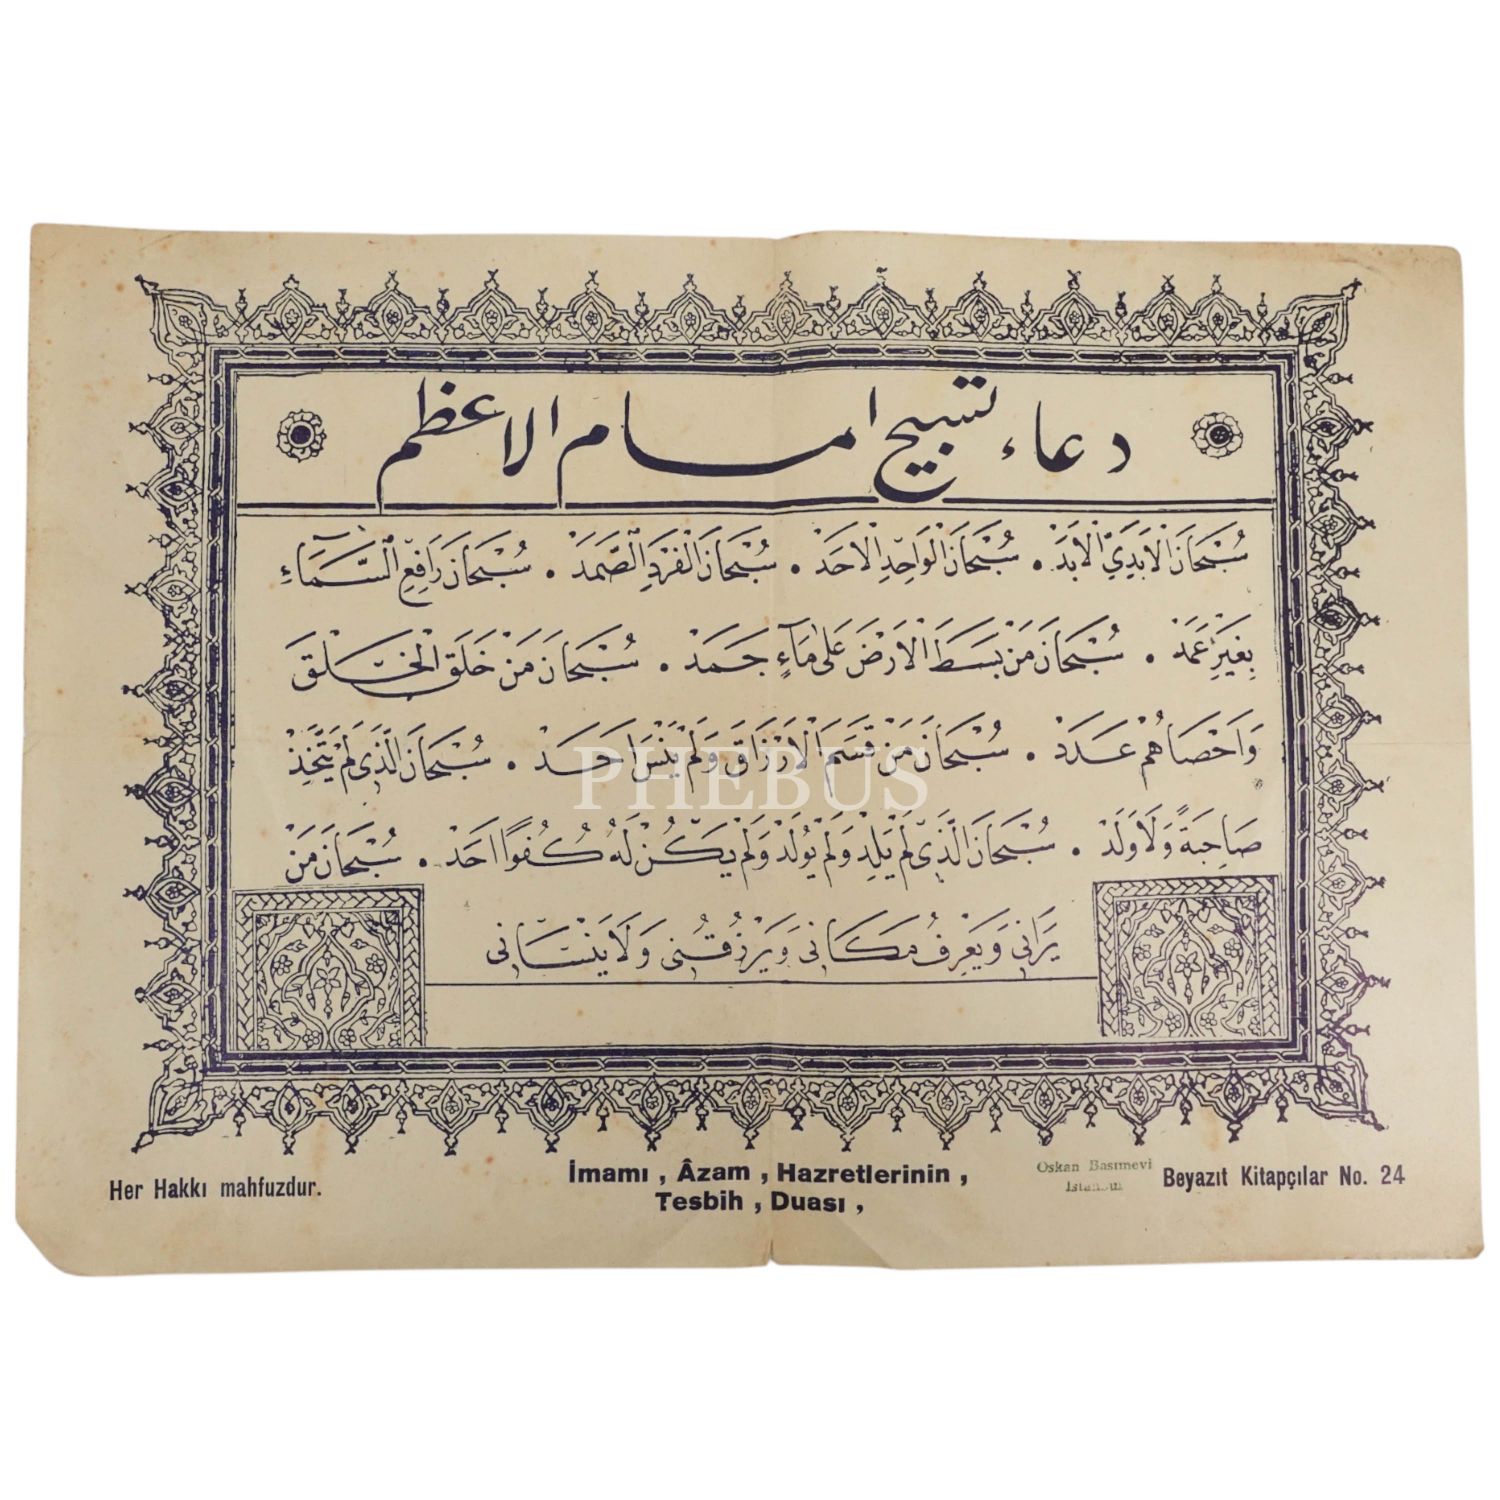 دعاء تسبيح امام الاعظم
سُبْحَانَ الْاَبَدِيِّ الْاَبَدْ . سُبْحَانَ الْوَاحِدِ الْاَحَدْ . سُبْحَانَ الْفَرْدِ الصَّمَدْ . سُبْحَانَ رَافِعِ السَّمَآءِ
بِغَيْرِ عَمَدْ . سُبْحَانَ مَنْ بَسَطَ الْاَرْضَ عَلٰى مَآءٍ جَمَدْ . سُبْحَانَ مَنْ خَلَقَ الْخَلْقَ
وَاَحْصَاهُمْ عَدَدْ . سُبْحَانَ مَنْ قَسَمَ الْاَرْزَاقَ وَلَمْ يَنْسَ اَحَدْ . سُبْحَانَ الَّذِى لَمْ يَتَّخِذْ
صَاحِبَةً وَلَا وَلَدْ . سُبْحَانَ الَّذِى لَمْ يَلِدْ وَلَمْ يُولَدْ وَلَمْ يَكُنْ لَهُ كُفُوًا اَحَدْ . سُبْحَانَ مَنْ
يَرَانِى وَيَعْرِفُ مَكَانِى وَيَرْزُقُنِى وَلَا يَنْسَانِى
PHEBUS
Her Hakkı mahfuzdur.
İmamı , Âzam , Hazretlerinin ,
Tesbih , Duası ,
Oskan Basımevi
İstanbul
Beyazıt Kitapçılar No. 24